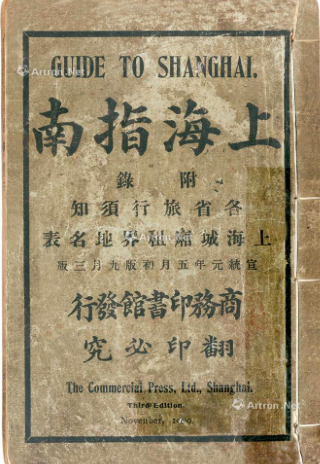 Artron.Net
GUIDE TO SHANGHAI.
上海指南
附錄
各省旅行須知
上海城廂租界地名表
宣統元年五月初版九月三版
商務印書館發行
翻印必究
The Commercial Press, Ltd., Shanghai.
Third Edition.
November, 1909.
Artron.Net